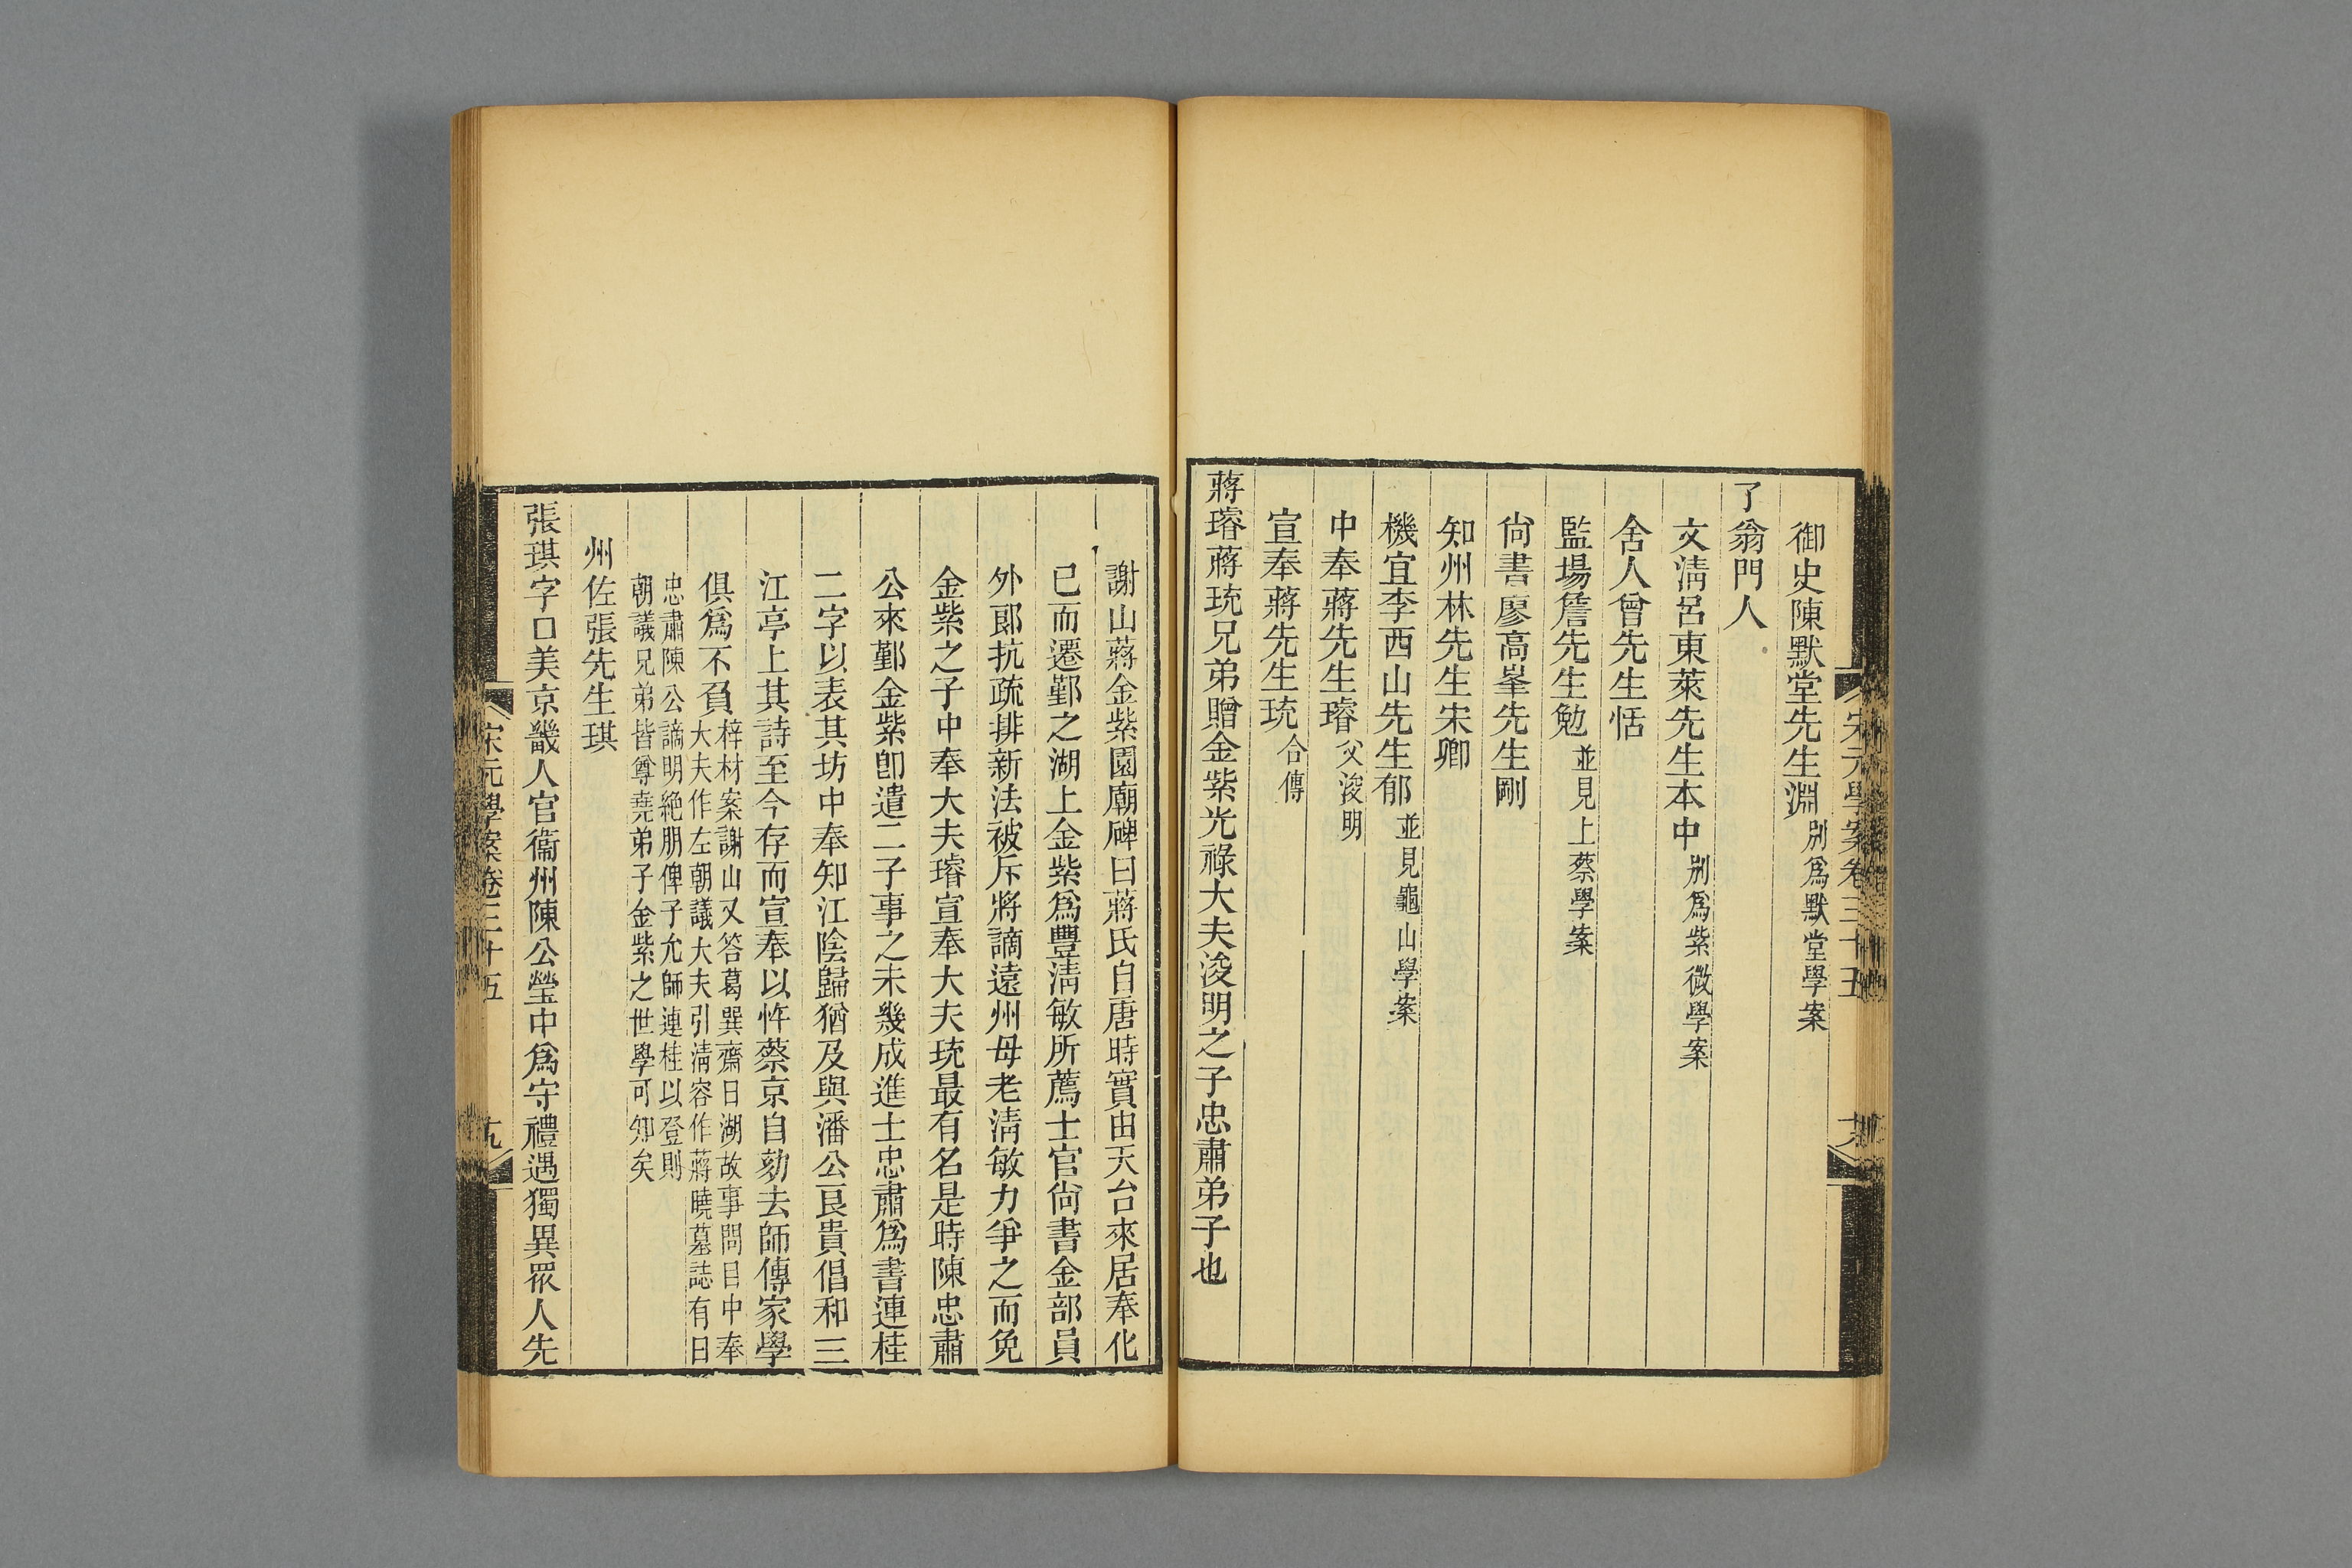 御史陳默堂先生淵別爲默堂學案
了翁門人
文淸呂東萊先生本中別爲紫微學案
舍人曾先生恬
監場詹先生勉並見上蔡學案
尙書廖高峯先生剛
知州林先生宋卿
機宜李西山先生郁並見龜山學案
中奉蔣先生璿父浚明
宣奉蔣先生琉合傳
蔣璿蔣琉兄弟贈金紫光祿大夫浚明之子忠肅弟子也
謝山蔣金紫園廟碑曰蔣氏自唐時實由天台來居奉化
已而遷鄞之湖上金紫爲豐淸敏所薦士官尙書金部員
外郞抗疏排新法被斥將謫遠州母老淸敏力爭之而免
金紫之子中奉大夫璿宣奉大夫琉最有名是時陳忠肅
公來鄞金紫卽遣二子事之未幾成進士忠肅爲書連桂
二字以表其坊中奉知江陰歸猶及與潘公良貴倡和三
江亭上其詩至今存而宣奉以忤蔡京自劾去師傳家學
俱爲不負梓材案謝山又答葛巽齋日湖故事問目中奉
大夫作左朝議大夫引淸容作蔣曉墓誌有曰
忠肅陳公謫明絶朋俾子允師連桂以登則
朝議兄弟皆尊堯弟子金紫之世學可知矣
州佐張先生琪
張琪字口美京畿人官衞州陳公瑩中爲守禮遇獨異眾人先
宋元學案卷三十五
九